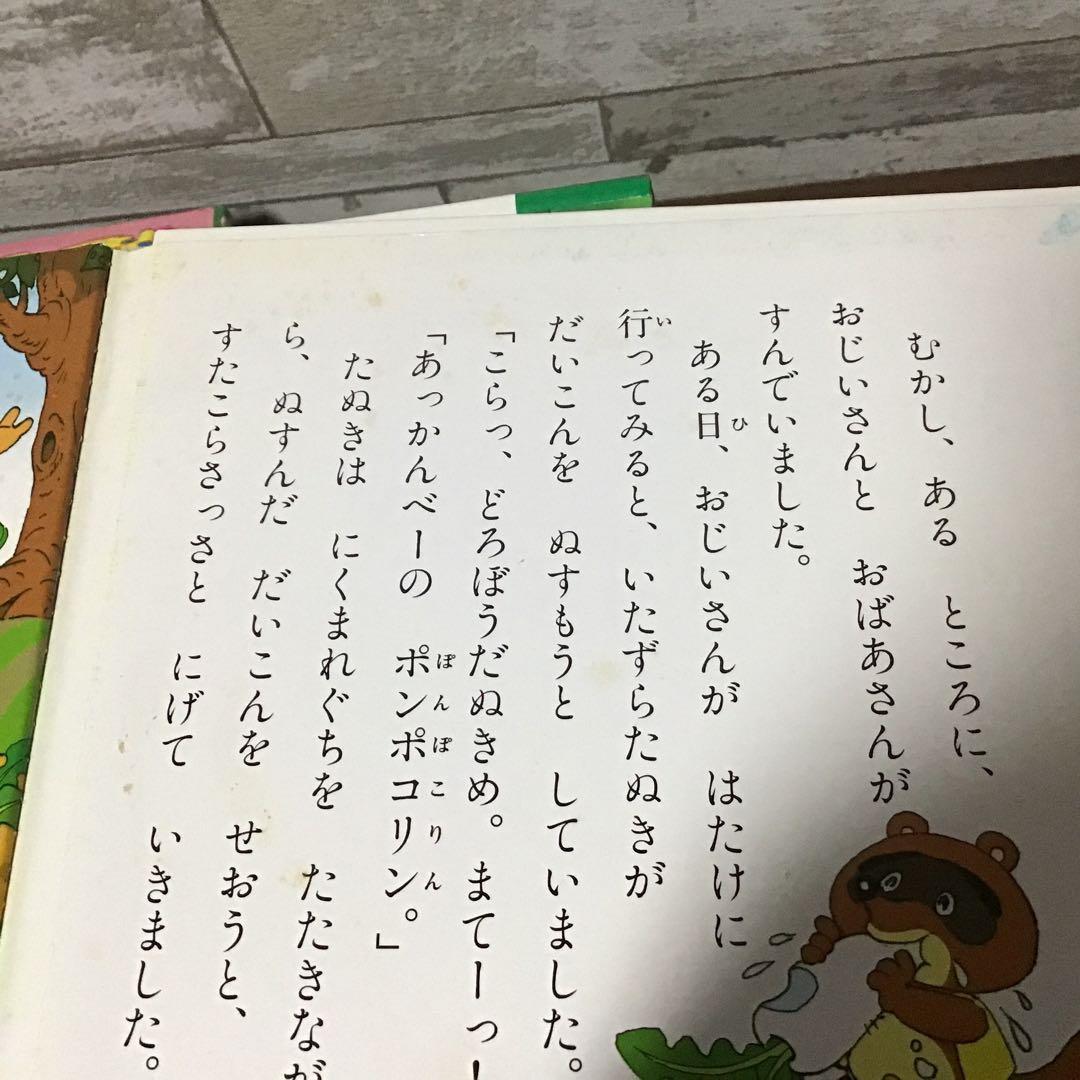 むかし、ある　ところに、
おじいさんと　おばあさんが
すんでいました。
ある日、おじいさんが　はたけに
行ってみると、いたずらたぬきが
だいこんを　ぬすもうと　していました。
「こらっ、どろぼうだぬきめ。まてーっ！
「あっかんべーの　ポンポコリン。」
たぬきは　にくまれぐちを　たたきなが
ら、ぬすんだ　だいこんを　せおうと、
すたこらさっさと　にげて　いきました。